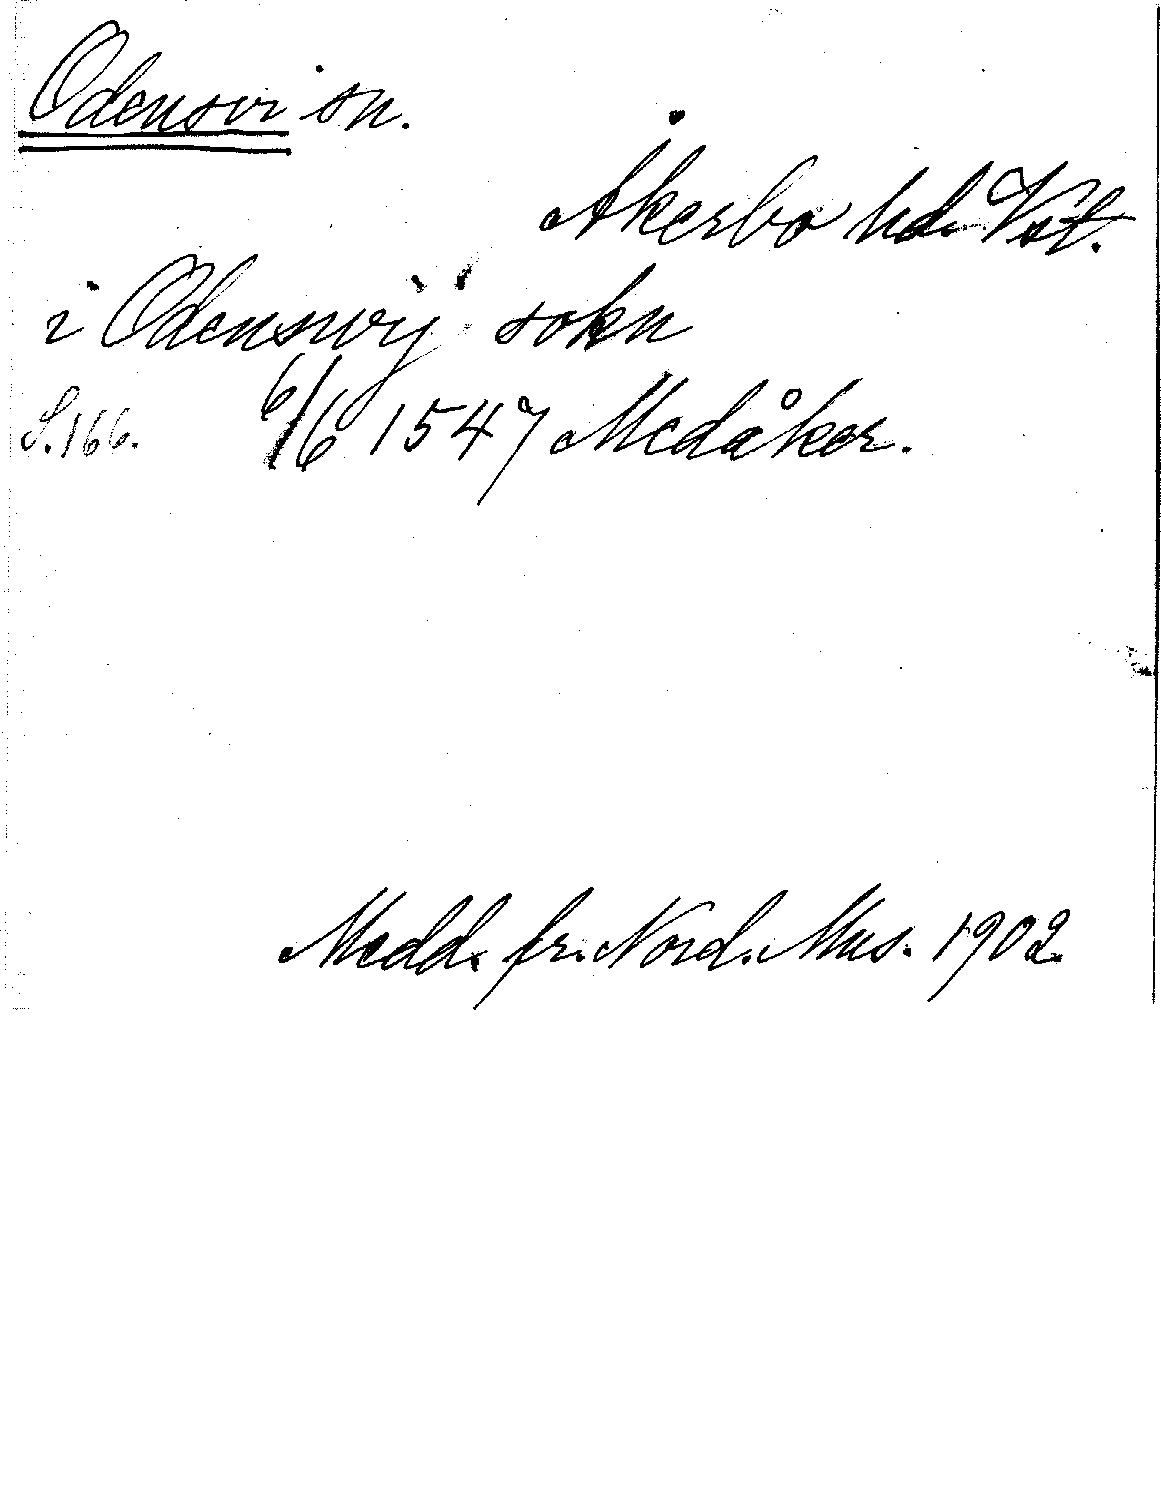 Odensvi sn.
Åkerbo hd. Vstl.
i Odenswij sokn
S. 166. 6/6 1547 Medåker.
Medd. fr. Nord. Mus. 1902.